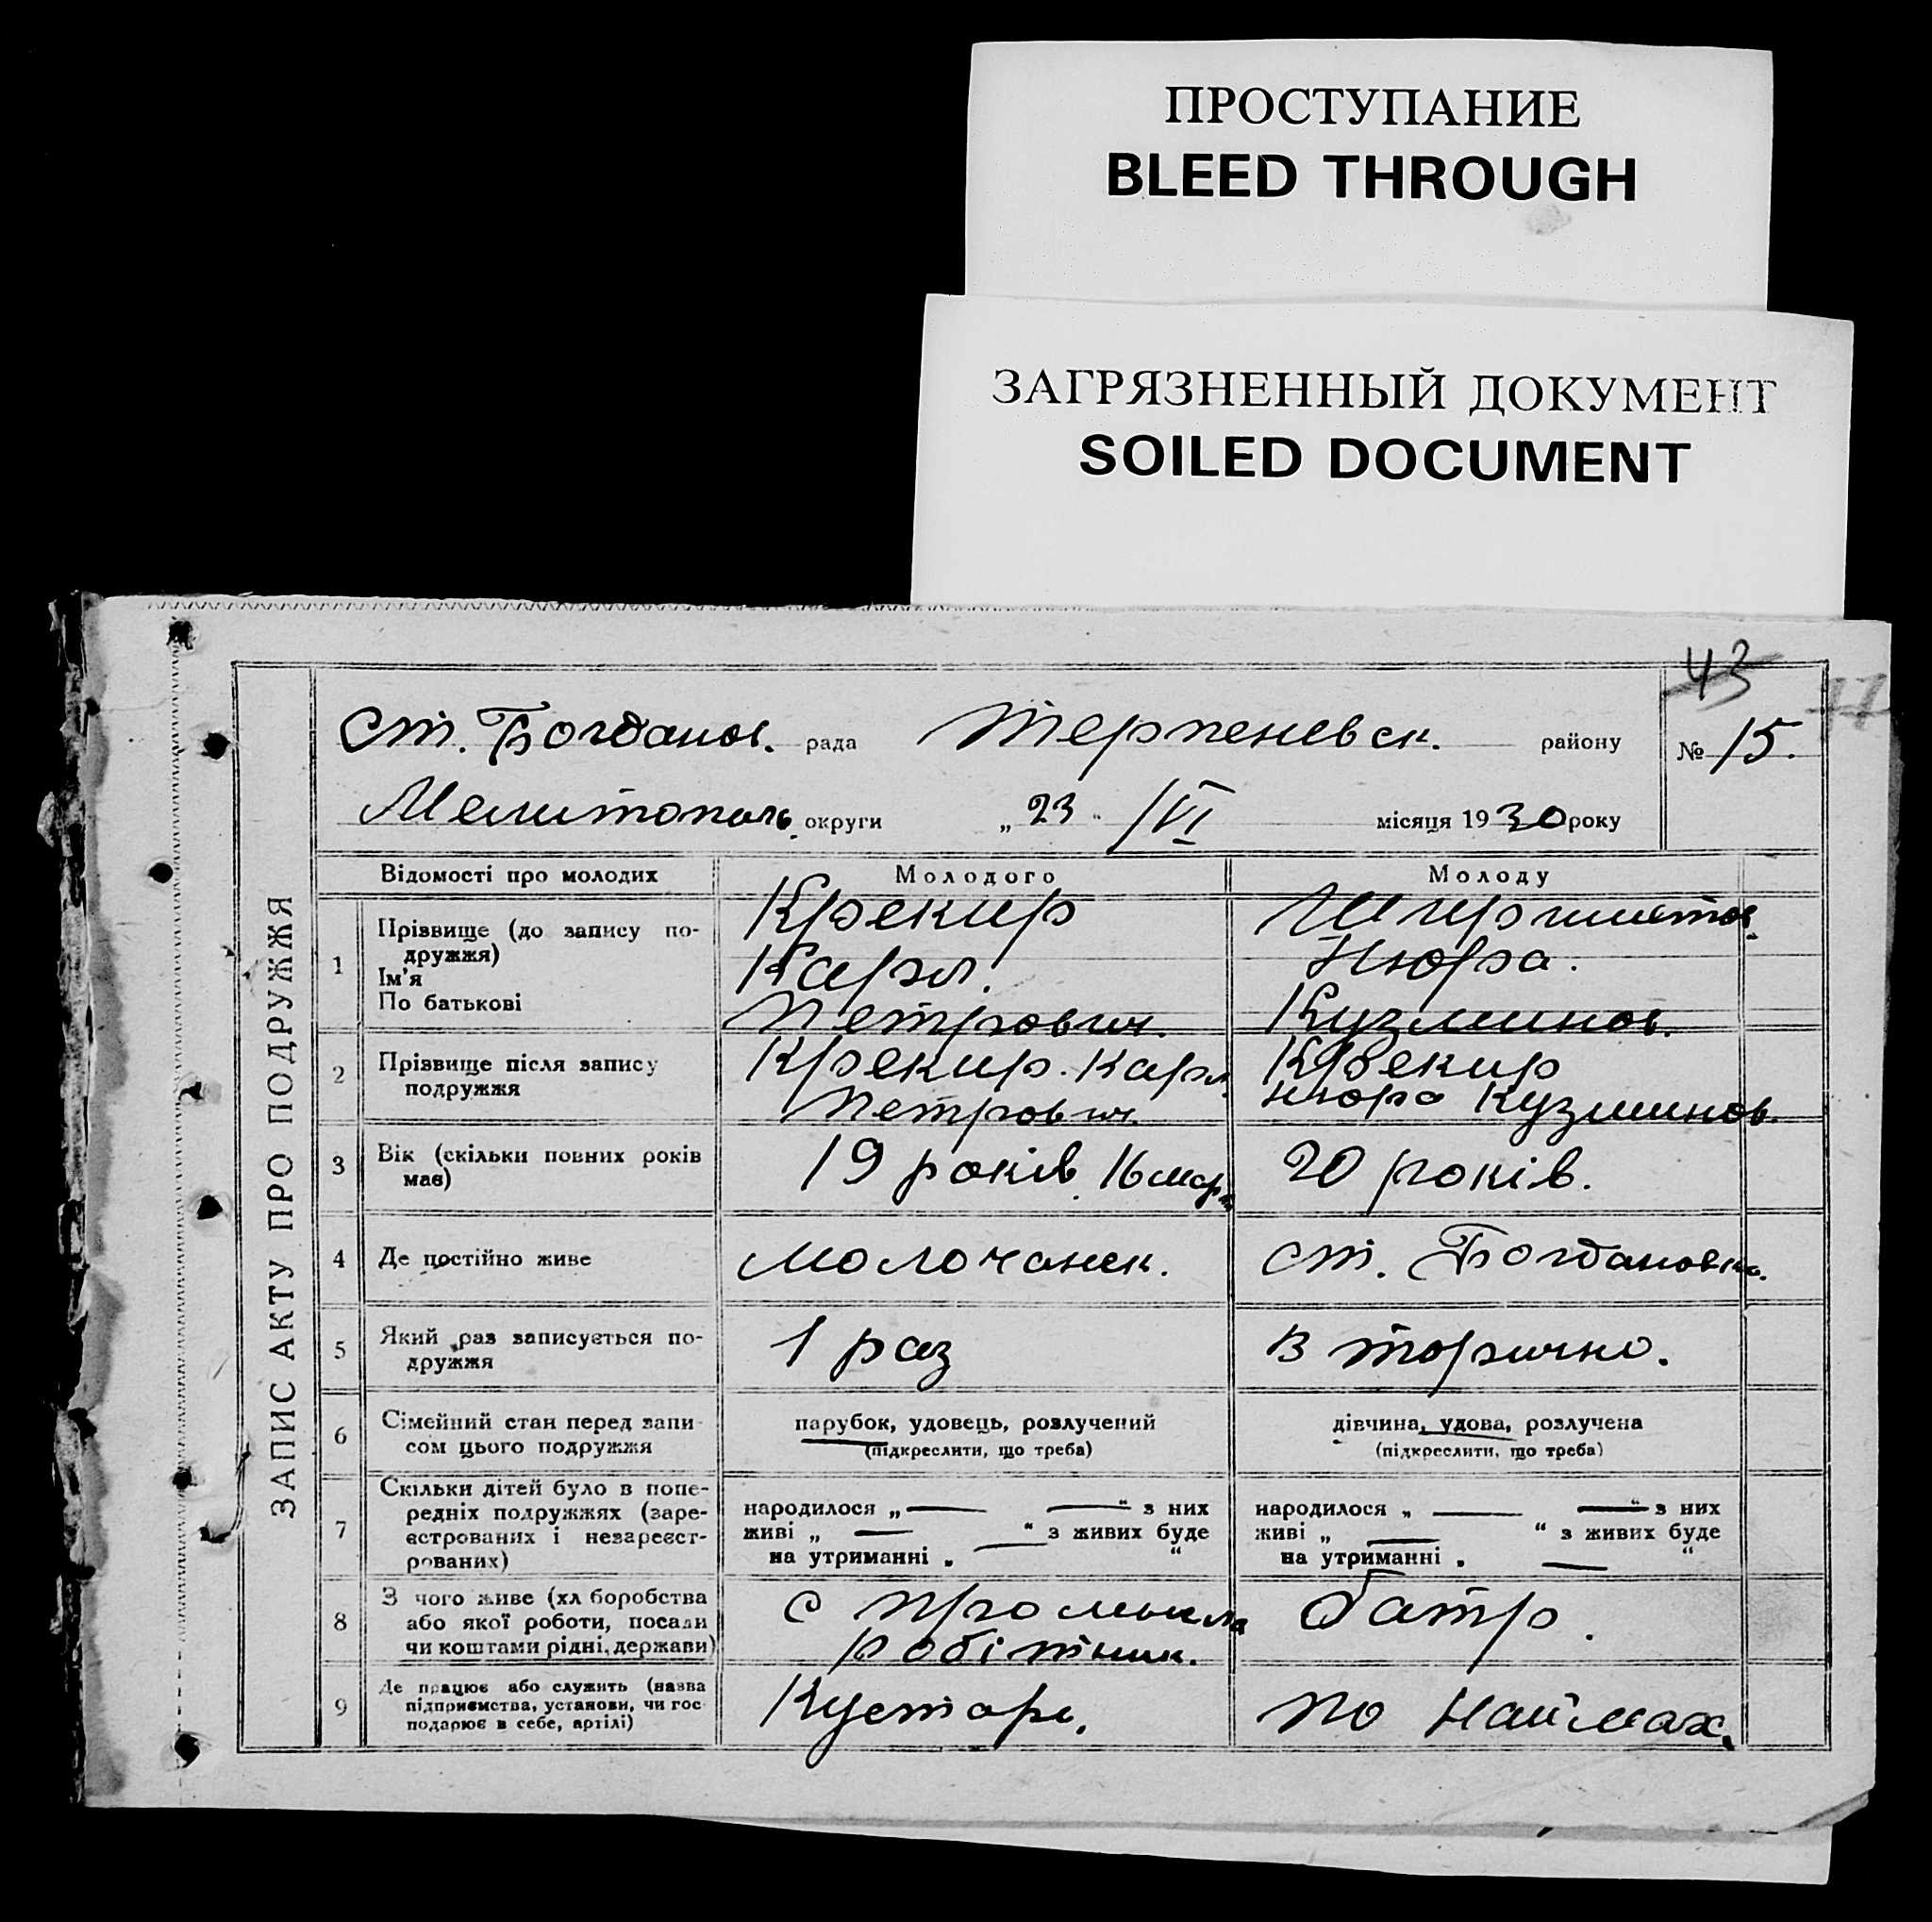 ПРОСТУПАНИЕ
BLEED THROUGH
ЗАГРЯЗНЕННЫЙ ДОКУМЕНТ
SOILED DOCUMENT
43
ЗАПИС АКТУ ПРО ПОДРУЖЖЯ
ст. Богданов. рада Терпеневск. району № 15.
Мелитополь. округи „23" /VI місяця 1930 року
Відомості про молодих Молодого Молоду
1 Прізвище (до запису по-
дружжя)
Ім'я
По батькові
Крекир
Карл.
Петрович.
Нюра.
Кузминов.
2 Прізвище після запису
подружжя
Крекир. Карл
Петрович.
Крекир
Нюра Кузминов.
3 Вік (скільки повних років
має)
19 років. 16 мар
20 років.
4 Де постійно живе
Молочанск.
ст. Богдановка.
5 Який раз записується по-
дружжя
1 раз
в торично.
6 Сімейний стан перед запи-
сом цього подружжя
парубок, удовець, розлучений
(підкреслити, що треба)
дівчина, удова, розлучена
(підкреслити, що треба)
7 Скільки дітей було в попе-
редніх подружжях (заре-
єстрованих і незареєст-
рованих)
народилося „ — — " з них
живі „ — " з живих буде
на утриманні „ — "
народилося „ — — " з них
живі „ — " з живих буде
на утриманні „ — "
8 З чого живе (хл боробства
або якої роботи, посади
чи коштами рідні, держави)
с промысла
робітник.
батр.
9 Де працює або служить (назва
підприємства, установи, чи гос-
подарює в себе, артілі)
Кустарь.
по наймах.